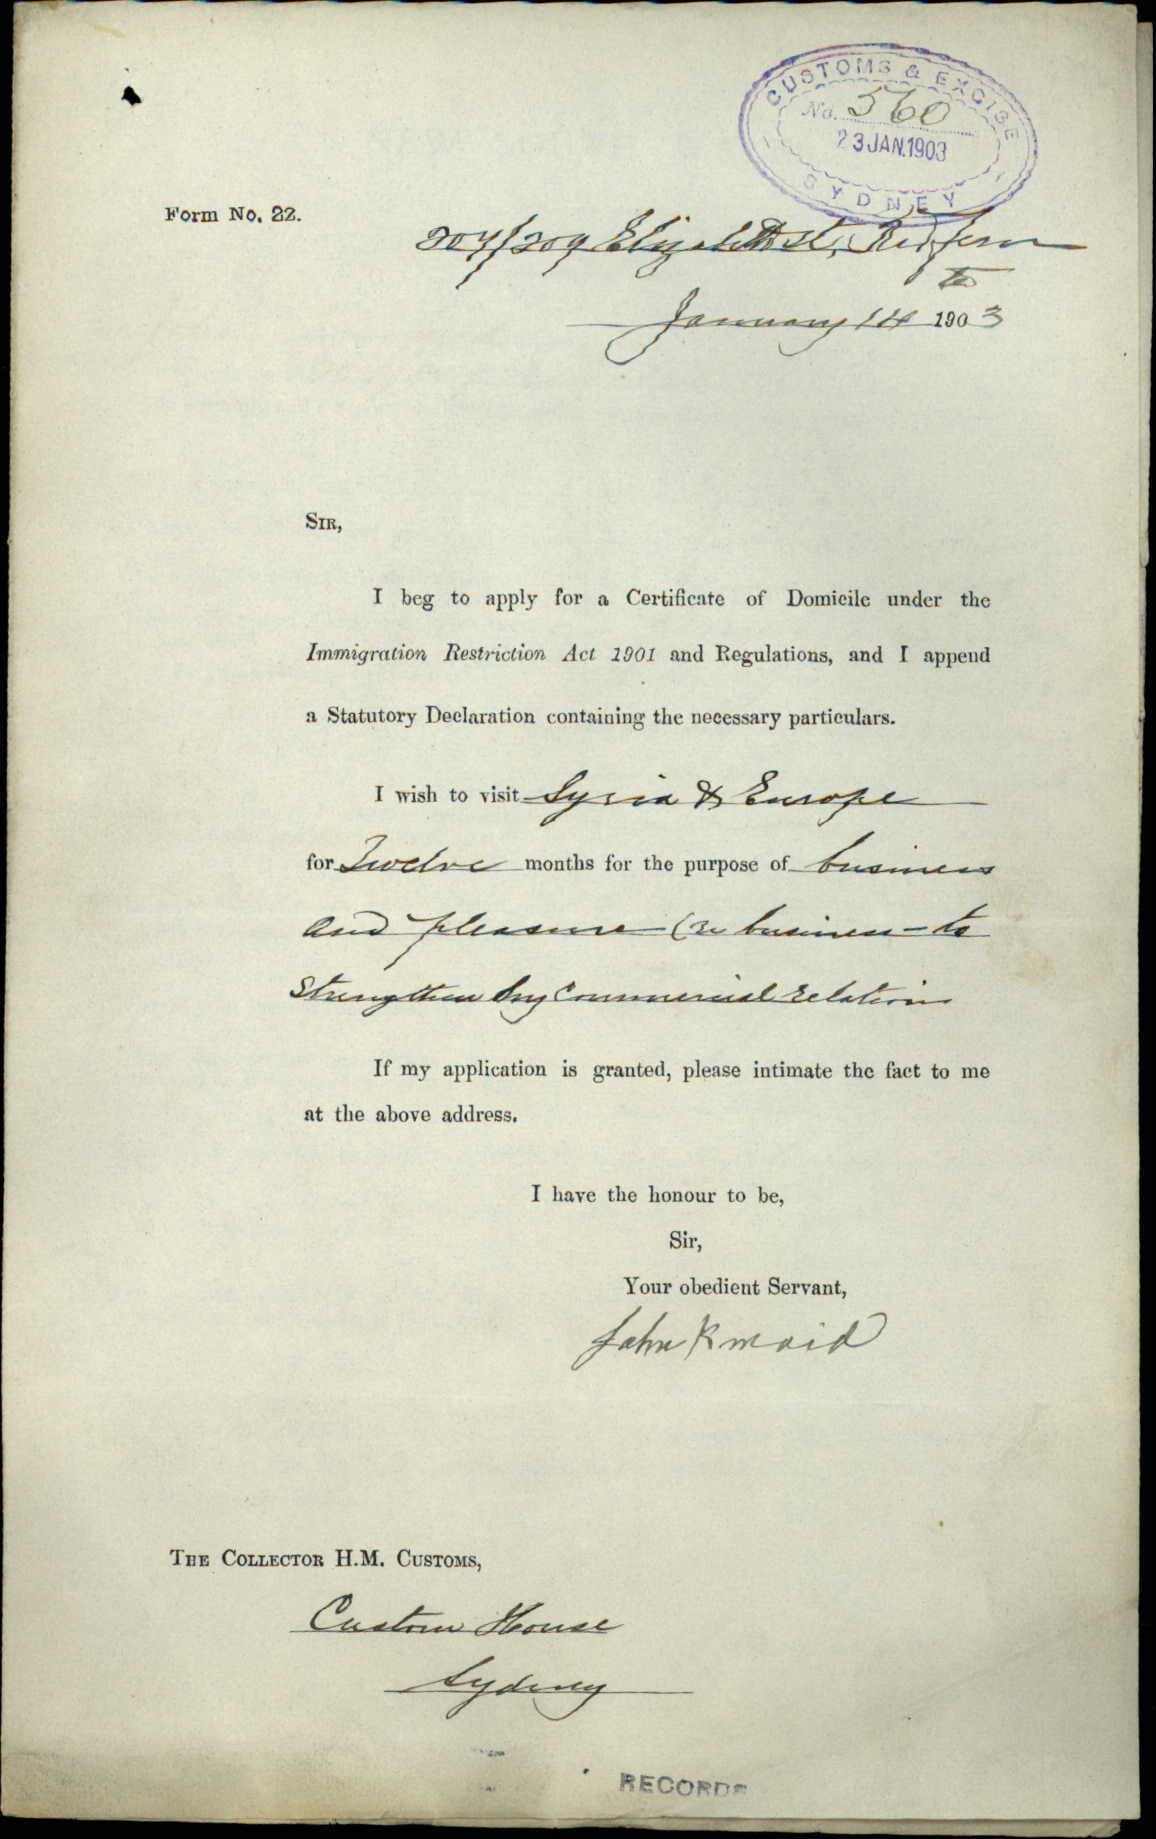 CUSTOMS & EXCISE
No. 560
23 JAN.1903
SYDNEY
Form No. 22.
207/209 Elizabeth St, Redfern
January 14th 1903
SIR,
I beg to apply for a Certificate of Domicile under the
Immigration Restriction Act 1901 and Regulations, and I append
a Statutory Declaration containing the necessary particulars.
I wish to visit Syria & Europe
for Twelve months for the purpose of business
and pleasure (re business - to
strengthen my Commercial relations
If my application is granted, please intimate the fact to me
at the above address.
I have the honour to be,
Sir,
Your obedient Servant,
John Kmaid
THE COLLECTOR H.M. CUSTOMS,
Custom House
Sydney
RECORDS